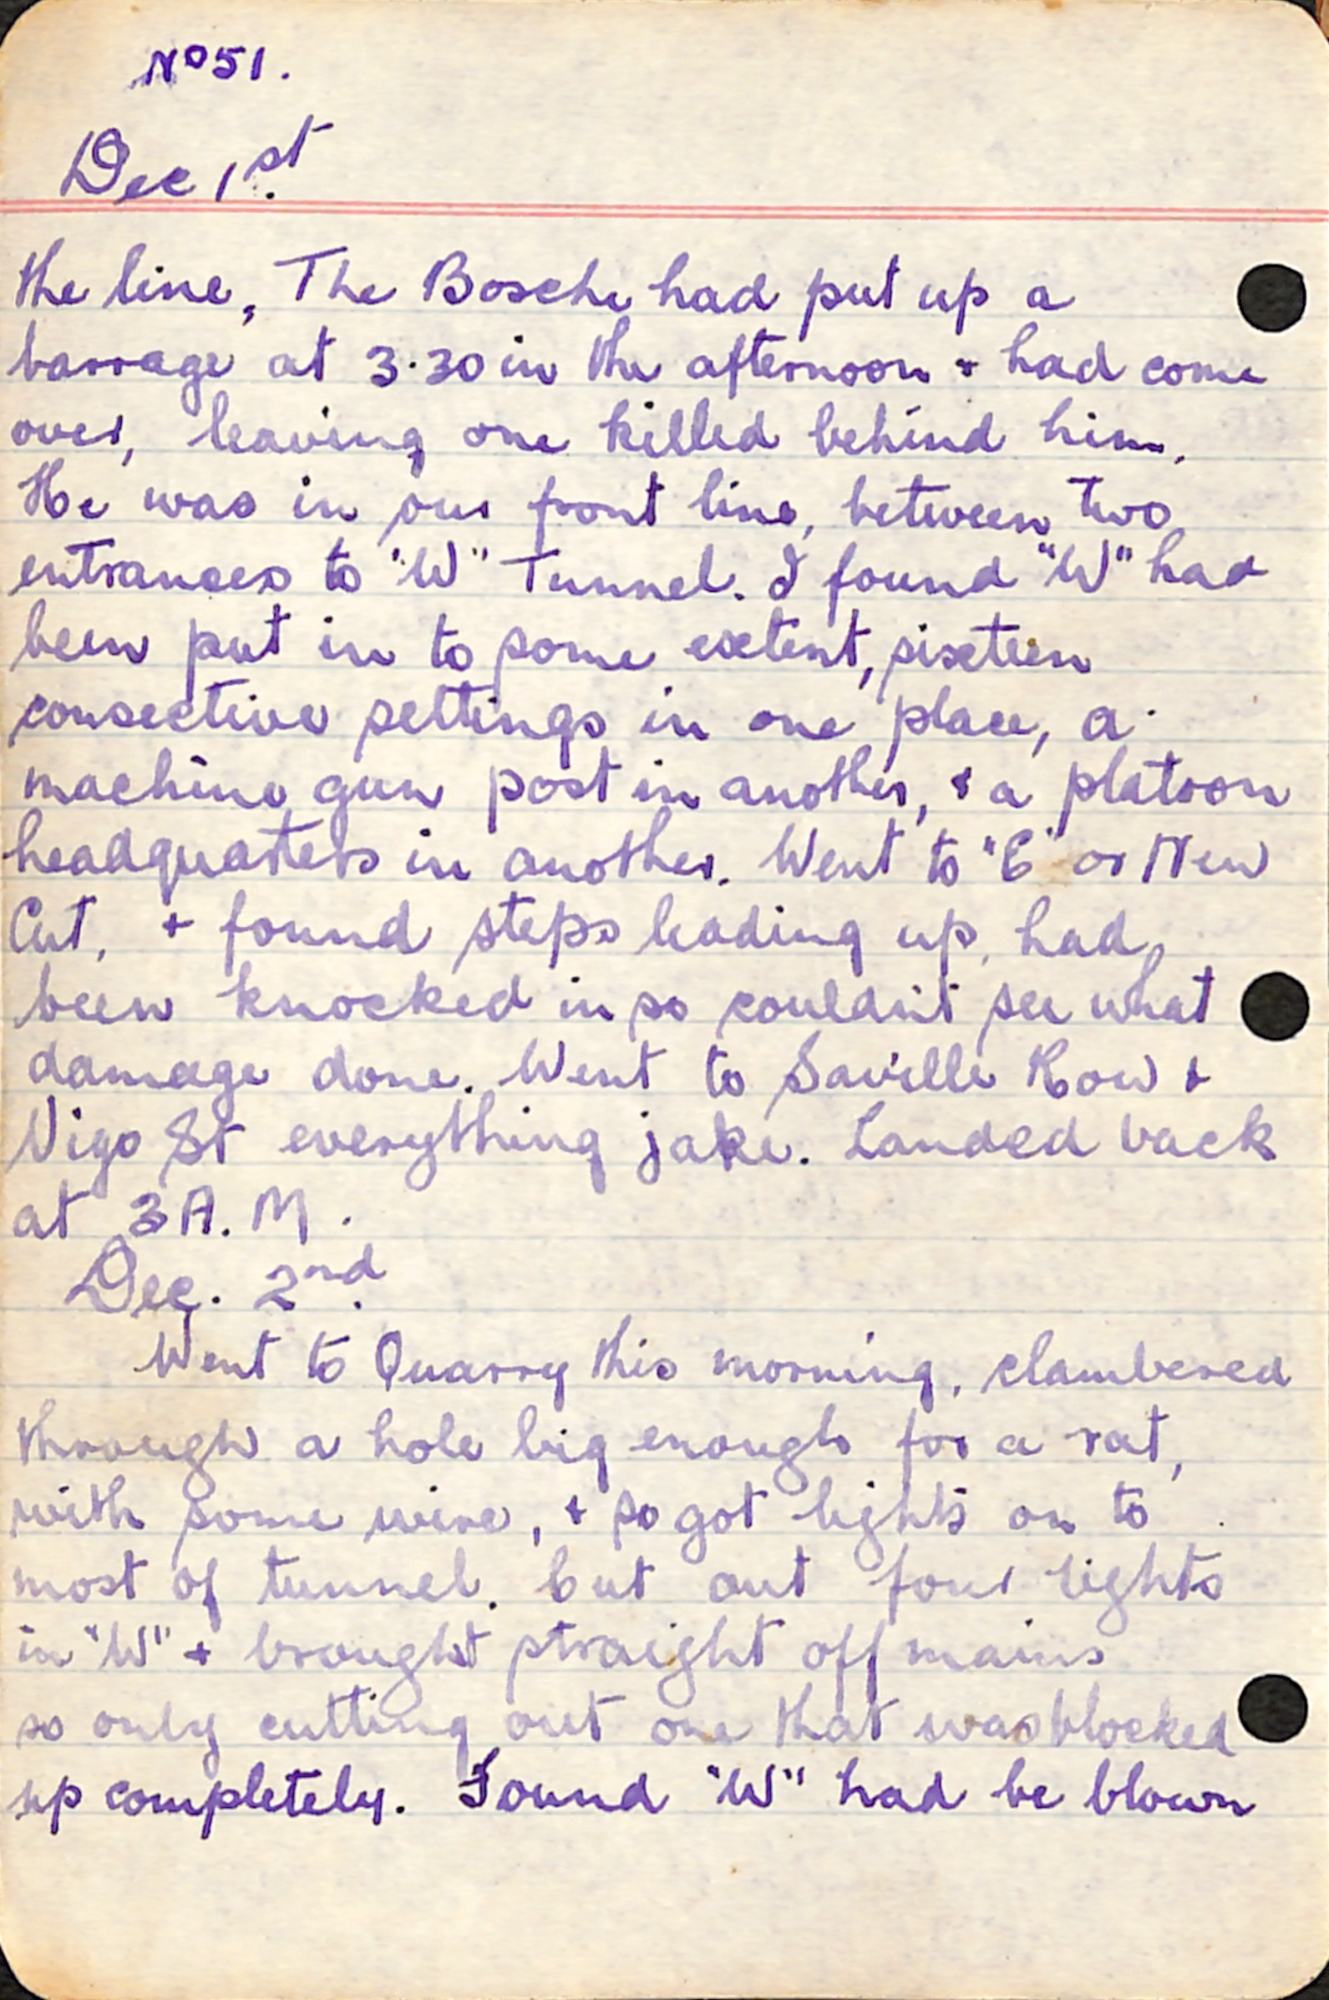 No 51.
Dec 1st.
the line, The Bosche had put up a
barrage at 3.30 in the afternoon + had come
over, leaving one killed behind him.
He was in our front line, between two
entrances to "W" Tunnel. I found "W" had
been put in to some extent, sixteen
consective settings in one place, a
machine gun post in another, & a platoon
headquarters in another. Went to "E" or New
Cut, + found steps leading up, had,
been knocked in so couldn't see what
damage done. Went to Saville Row &
Vigo St everything jake. Landed back
at 3 A.M.
Dec. 2nd.
Went to Quarry this morning, clambered
through a hole big enough for a rat,
with some wire, + so got lights on to
most of tunnel. Cut out four lights
in "W" + brought straight off mains
so only cutting out one that was blocked
up completely. Found "W" had be blown